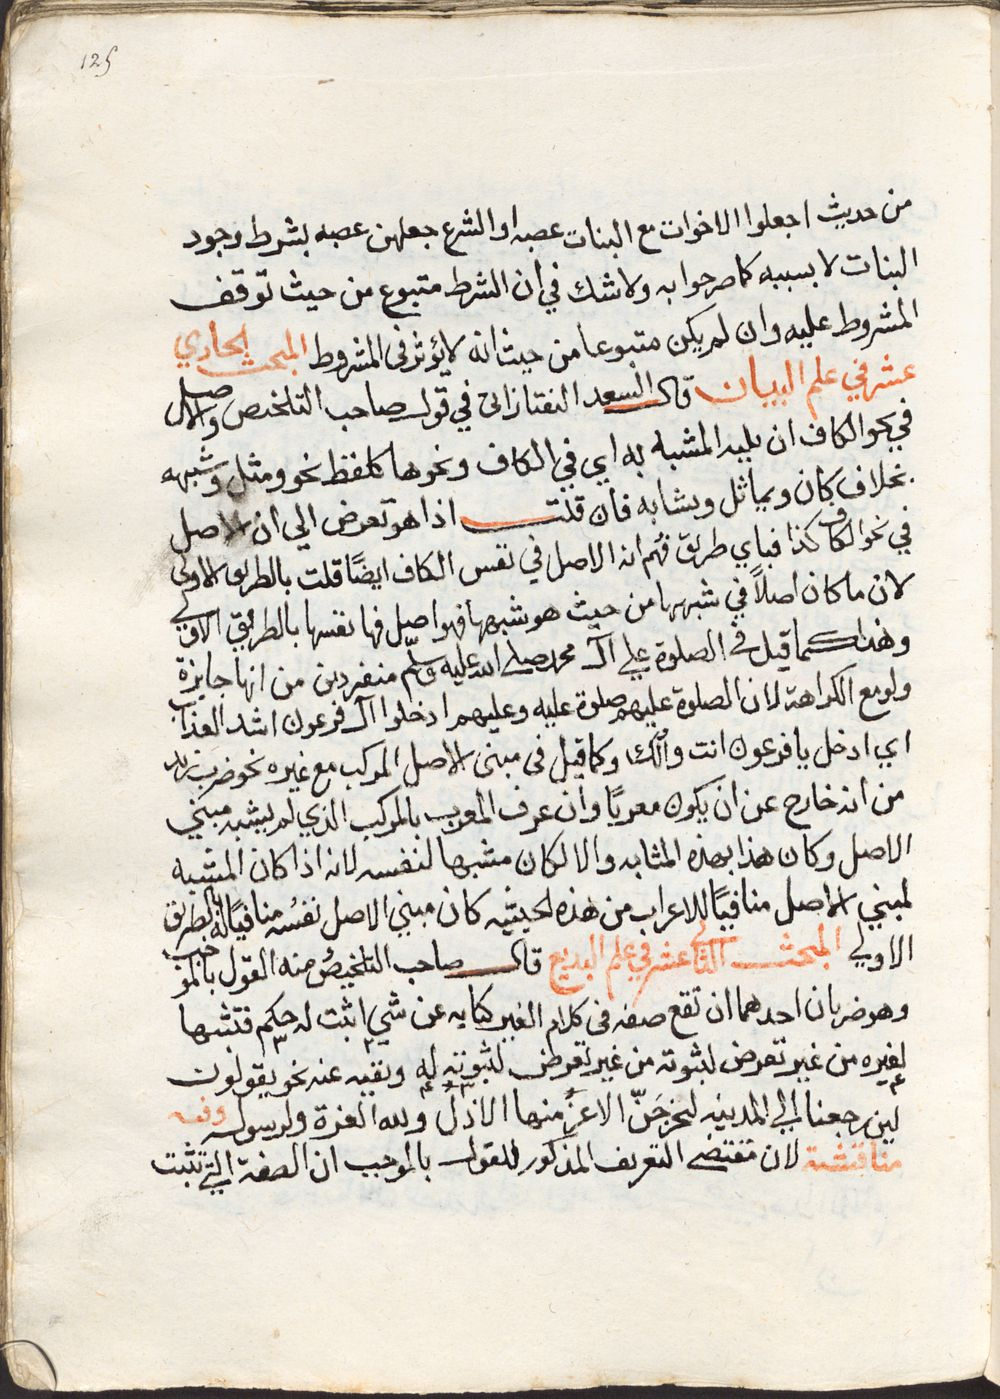 125
من حديث اجعلوا الاخوات مع البنات عصبه او الشرع جعلهن عصبه بشرط وجود
البنات لا بسببه كما مر جوابه ولا شك في ان الشرط متبوع من حيث توقف
المشروط عليه وان لم يكن متبوعا من حيث انه لا يؤثر في المشروط المبحث الحادي
عشر في علم البيان قال السعد التفتازاني في قول صاحب التلخيص والاصل
في نحو الكاف ان يليه المشبه به اي في الكاف ونحوها كلفظ نحو ومثل وشبهه
بخلاف كان ويماثل ويشابه فان قلت اذا هو تعرض الي ان الاصل
في نحو الكاف كذا فباي طريق فهم انه الاصل في نفس الكاف ايضًا قلت بالطريق الاولى
لان ما كان اصلاً في شبهها من حيث هو شبهها فهو اصل فيها نفسها بالطريق الاولي
وهذا كما قيل في الصلوة علي آل محمد صلي الله عليه وسلم منفردين من انها جايزة
ولو مع الكراهة لان الصلوة عليهم صلوة عليه وعليهم ادخلوا آل فرعون اشد العذاب
اي ادخل يا فرعون انت وآلك وكما قيل في مبنى الاصل المركب مع غيره نحو ضرب زيد
من انه خارج عن ان يكون معربًا وان عرف المعرب بالمركب الذي لم يشبه مبني
الاصل وكان هذا بهذه المثابه والا لكان مشبها لنفسه لانه اذا كان المشبه
لمبني الاصل منافيًا للاعراب من هذه الحيثيه كان مبني الاصل نفسُه منافيًا له بالطريق
الاولي المبحث الثاني عشر في علم البديع قال صاحب التلخيص منه القول بالموجب
وهو ضربان احدهما ان تقع صفه في كلام الغير كنايه عن شي اثبت له حكم فتثبتها
لغيره من غير تعرض لثبوته من غير تعرض لثبوته له ونفيه عنه نحو يقولون
لين رجعنا الي المدينه ليخرجَنّ الاعزّ منها الاذل ولله العزة ولرسوله وفيه
مناقشة لان مقتضي التعريف المذكور للقول بالموجب ان الصفة التي تثبت